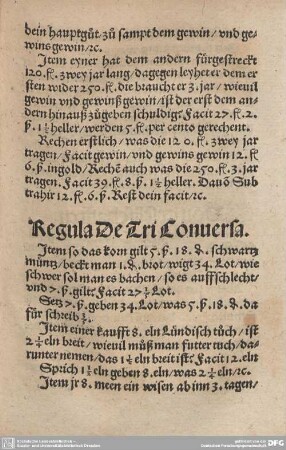 dein hauptgůt/zů sampt dem gewin/vnd ge-
wins gewin/ꝛc.
Item eyner hat dem andern fürgestreckt
120. fl. zwey jar lang/dagegen leyhet er dem er
sten wider 250.fl. die braucht er 3. jar/wieuil
gewin vnd gewinß gewin/ist der erst dem an-
dern hinauß zůgeben schuldig: Facit 27.fl. 2.
ß. 1½ heller/werden 5.fl. per cento gerechent.
Rechen erstlich/was die 12 0. fl. zwey jar
tragen/Facit gewin/vnd gewins gewin 12. fl.
6.ß. in gold/Rechẽ auch was die 250.fl. 3. jar
tragen. Facit 39.fl. 8. ß. 1½ heller. Dauõ Sub
trahir 12.fl. 6.ß. Rest dein facit/ꝛc.
Regula De Tri Conuersa.
Item so das korn gilt 5. ß. 18. d. schwartz
müntz/beckt man 1. d. brot/wigt 34. Lot/wie
schwer sol man es bachen/so es auffschlecht/
vnd 7. ß. gilt: Facit 27½ Lot.
Setz 7. ß. geben 34. Lot/was 5. ß. 18. d. da
für schreib
Item einer kaufft 8. eln Lündisch tůch/ist
2¼ eln breit/wieuil můß man futter tuch/dar-
runter nemen/das 1½ eln breit ist: Facit 12. eln
Sprich 1½ eln geben 8. eln/was 2¼ eln/ꝛc.
Item jr 8. meen ein wisen ab inn 3. tagen/